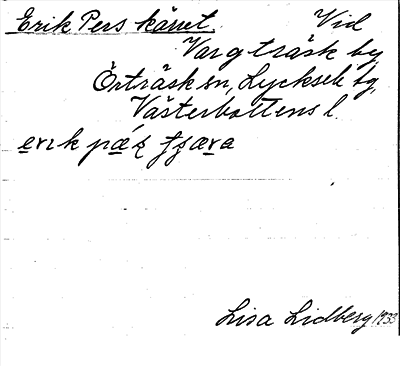 Erik Pers kärret. Vid
Vargträsk by,
Örträsk sn, Lycksele tg,
Västerbottens l.
erik pǽ̨ʂ
Lisa Lidberg 1933